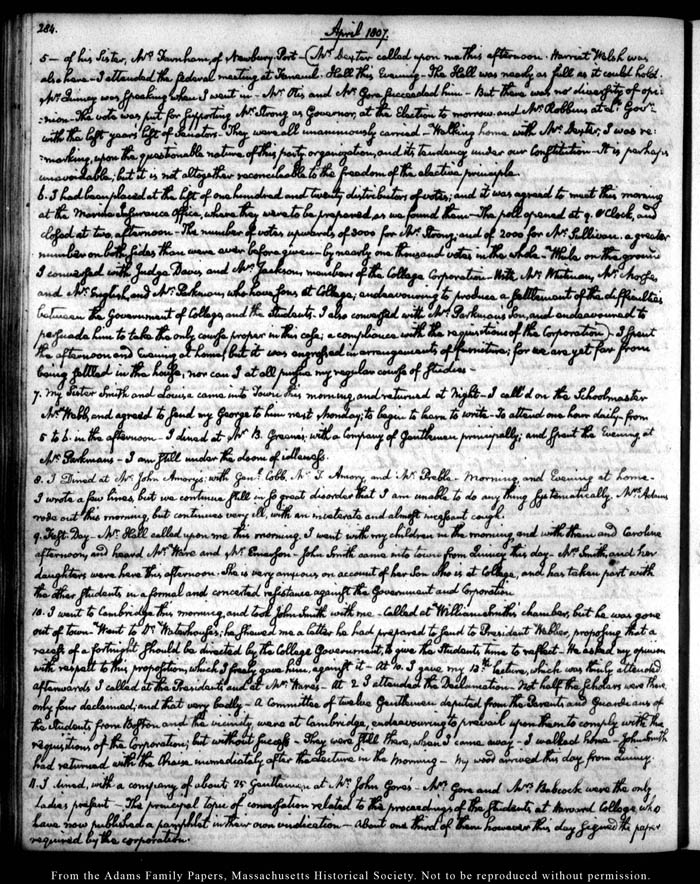 284.
April 1807.
5— of his Sister, Mrs Farnham, of Newbury-Port — (Mr Dexter called upon me this afternoon. Harriet Welsh was
also here — I attended the federal meeting at Faneuil-Hall this Evening — The Hall was nearly as full as it could hold.
Mr Quincy was speaking when I went in — Mr Otis and Mr Gore succeeded him — But there was no diversity of opi-
:nion — The vote was put for supporting Mr Strong as Governor, at the Election to morrow, and Mr Robbins as Lt Govr
with the last years list of Senators — They were all unanimously carried — Walking home with Mr Dexter, I was re:
:marking, upon the questionable nature of this party organization, and its tendency under our Constitution — It is perhaps
unavoidable; but it is not altogether reconcileable to the freedom of the elective principle.
6. I had been placed at the list of one hundred and twenty distributors of votes; and it was agreed to meet this morning
at the Marine Insurance Office, where they were to be prepared as we found them — The poll opened at 9. O'Clock, and
closed at two, afternoon — The number of votes upwards of 3000 for Mr Strong; and of 2000 for Mr Sullivan. a greater
number on both sides than were ever before given — by nearly one thousand votes in the whole — While on the ground
I conversed with Judge Davis and Mr Jackson, members of the College Corporation — With Mr Whitman, Mr Morse,
and Mr English, and Mr Parkman, who have sons at College; endeavouring to produce a settlement of the difficulties
between the Government of College, and the students. I also conversed with Mr Parkmans son, and endeavoured to
persuade him to take the only course proper in this case; a compliance with the requisitions of the Corporation) — I spent
the afternoon and evening at home; but it was engrossed in arrangements of furniture; for we are yet far from
being settled in the house; nor can I at all pursue my regular course of studies —
7. My Sister Smith and Louisa came into Town this morning, and returned at Night — I call'd on the Schoolmaster
Mr Webb, and agreed to send my George to him next Monday; to begin to learn to write — To attend one hour daily from
5 to 6. in the afternoon — I dined at Mr B. Greene's, with a company of Gentlemen principally; and spent the Evening at
Mr Parkmans — I am still under the doom of idleness.
8. I Dined at Mr John Amory's; with Genl Cobb, Mr T. Amory, and Mr Preble — Morning, and Evening at home —
I wrote a few lines, but we continue still in so great disorder that I am unable to do any thing systematically. Mrs Adams
rode out this morning, but continues very ill, with an inveterate and almost incessant cough.
9. Fast-Day — Mr Hall called upon me this morning. I went with my children in the morning, and with them and Caroline
afternoon, and heard Mr Ware and Mr Emerson — John Smith came into town from Quincy this day — Mrs Smith, and her
daughters were here this afternoon — She is very anxious on account of her Son who is at College, and has taken part with
the other students in a formal and concerted resistance against the Government and Corporation.
10. I went to Cambridge this morning, and took John Smith with me — Called at William Smith's chamber, but he was gone
out of town — Went to Dr Waterhouse's; he shewed me a letter he had prepared to send to President Webber, proposing that a
recess of a fortnight should be directed by the College Government, to give the Students time to reflect — He asked my opinion
with respect to this proposition, which I freely gave him, against it — At 10. I gave my 13th lecture, which was thinly attended
afterwards I called at the Presidents and at Mr Ware's — At 2 I attended the Declamation — Not half the scholars were there,
only four declaimed; and that very badly — A Committee of twelve Gentlemen deputed from the Parents and Guardians of
the Students from Boston and the vicinity were at Cambridge, endeavouring to prevail upon them to comply with the
requisitions of the Corporation; but without success — They were still there, when I came away — I walked home — John Smith
had returned with the Chaise immediately after the lecture in the Morning — My wood arrived this day from Quincy.
11. I dined, with a company of about 25 Gentlemen at Mr John Gore's — Mrs Gore and Mrs Babcock were the only
Ladies present — The principal topic of conversation related to the proceedings of the Students at Harvard College, who
have now published a pamphlet in their own vindication — about one third of them however this day signed the paper
required by the corporation.
From the Adams Family Papers, Massachusetts Historical Society. Not to be reproduced without permission.